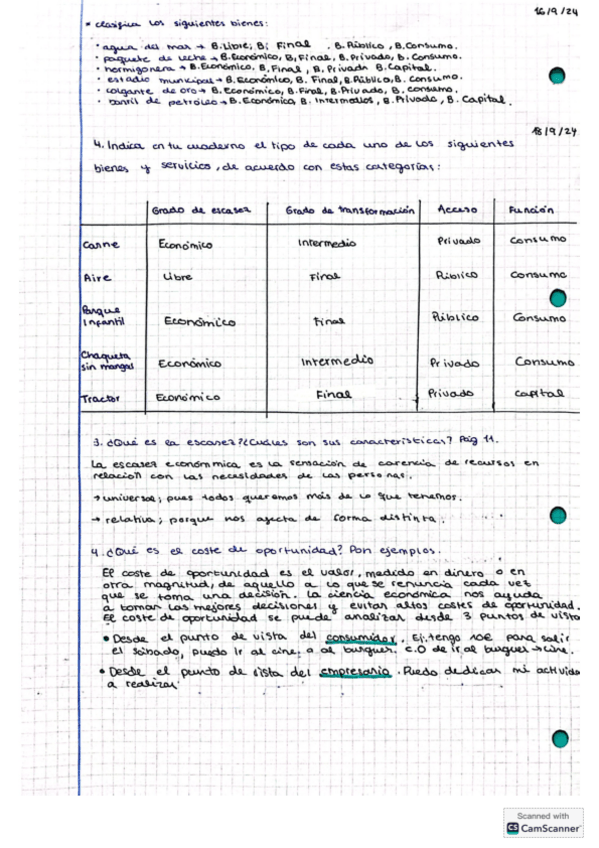 16/9/24
* clasifica los siguientes bienes:
· agua del mar → B. Libre, B. Final , B. Público, B. Consumo.
· paquete de leche → B. Económico, B. Final, B. Privado, B. Consumo.
· hormigonera → B. Económico, B. Final, B. Privada B. Capital.
· estadio municipal → B. Económico, B. Final, B. Público, B. Consumo.
· colgante de oro → B. Económico, B. Final, B. Privado, B. consumo.
· barril de petróleo → B. Económico, B. Intermedios, B. Privado, B. Capital.
18/9/24
4. Indica en tu cuaderno el tipo de cada uno de los siguientes
bienes y servicios, de acuerdo con estas categorías:
Grado de escasez Grado de transformación Acceso Función
Carne Económico Intermedio Privado Consumo
Aire Libre Final Público Consumo
Parque Infantil Económico Final Público Consumo
Chaqueta sin mangas Económico Intermedio Privado Consumo
Tractor Económico Final Privado Capital
3. ¿Qué es la escasez? ¿Cuáles son sus características? Pág 11.
La escasez económmica es la sensación de carencia de recursos en
relación con las necesidades de las personas.
→ universal; pues todos queremos más de lo que tenemos.
→ relativa; porque nos afecta de forma distinta.
4. ¿Qué es el coste de oportunidad? Pon ejemplos.
El coste de oportunidad es el valor, medido en dinero o en
otra magnitud, de aquello a lo que se renuncia cada vez
que se toma una decisión. La ciencia económica nos ayuda
a tomar las mejores decisiones y evitar altos costes de oportunidad.
El coste de oportunidad se puede analizar desde 3 puntos de vista
• Desde el punto de vista del consumidor. Ej: tengo 10€ para salir
el sábado, puedo ir al cine o al burguer. C.O de ir al burguer → cine.
• Desde el punto de vista del empresario. Puedo dedicar mi activida
a realizar
Scanned with
CS CamScanner